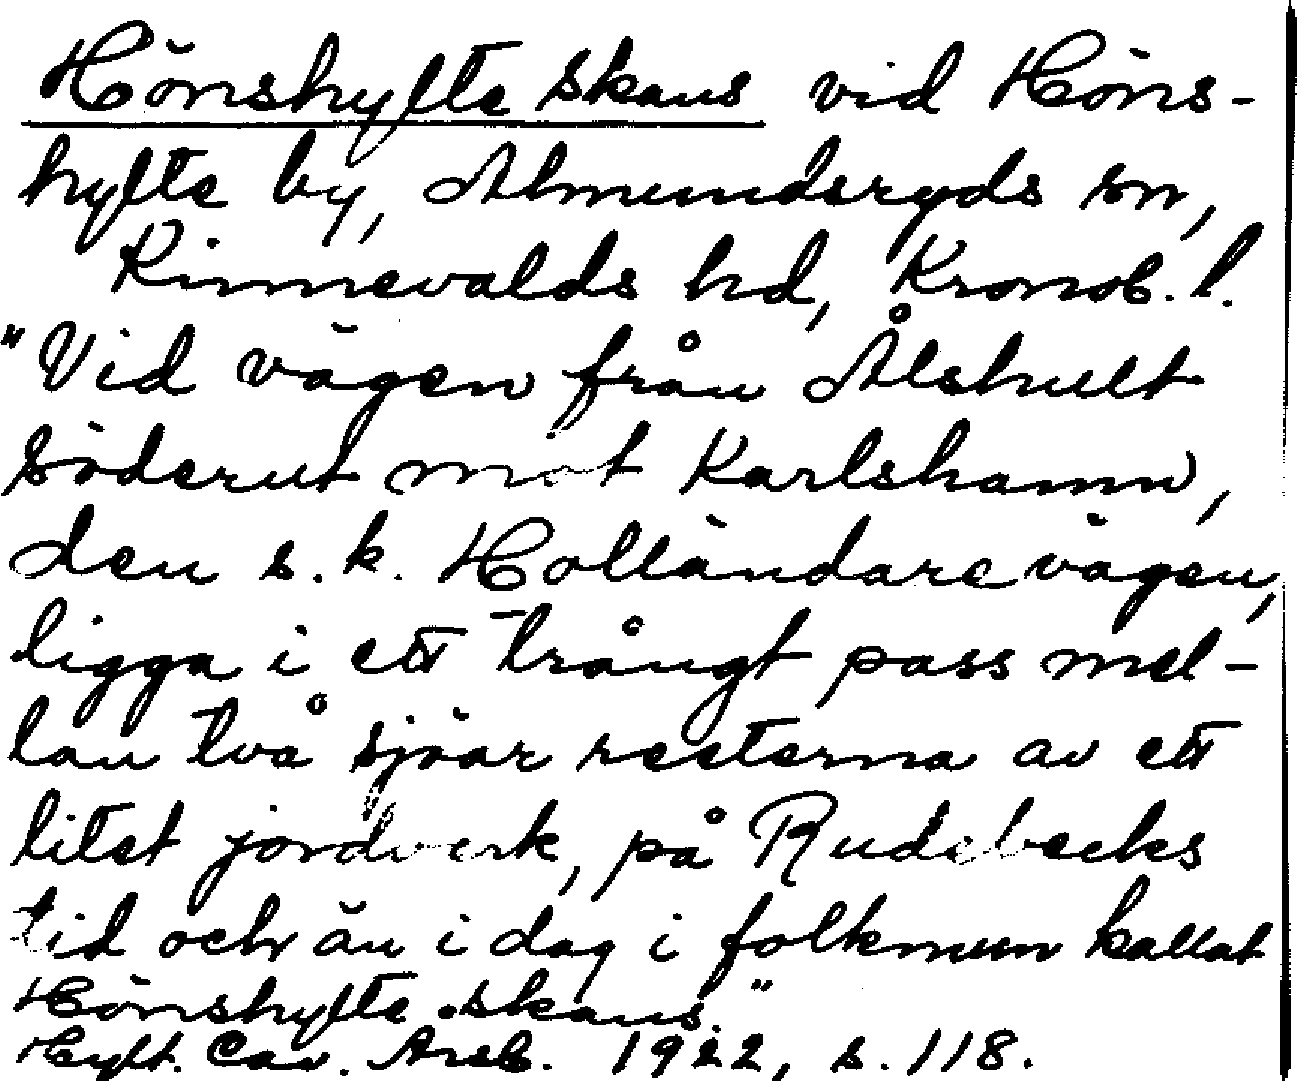 Hönshyfte skans vid Höns-
hyfte by, Almundsryds sn,
Kinnevalds hd, Kronob. l.
"Vid vägen från Ålshult
söderut mot Karlshamn,
den s.k. Holländarevägen,
ligga i ett trångt pass mel-
lan två sjöar resterna av ett
litet jordverk, på Rudebecks
tid och än i dag i folkmun kallat
Hönshyfte skans."
Hylt. Cav. Årsb. 1922, s. 118.